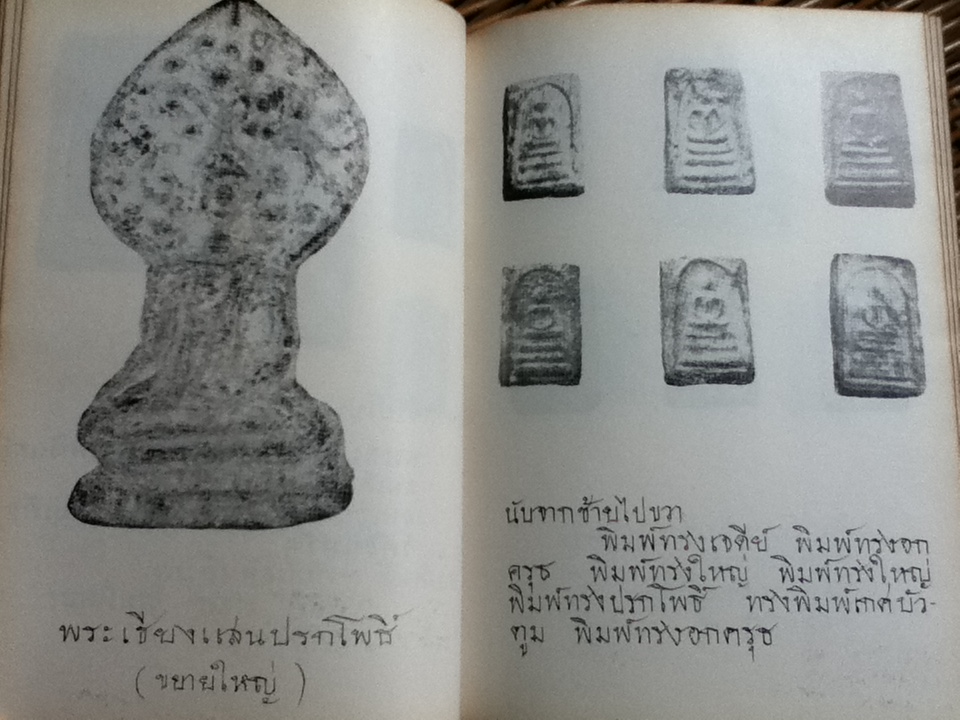 พระเชียงแสนปรกโพธิ์
(ขยายใหญ่)
นับจากซ้ายไปขวา
พิมพ์ทรงเจดีย์ พิมพ์ทรงอก
ครุธ พิมพ์ทรงใหญ่ พิมพ์ทรงใหญ่
พิมพ์ทรงปรกโพธิ์ ทรงพิมพ์เกศบัว-
ตูม พิมพ์ทรงอกครุธ